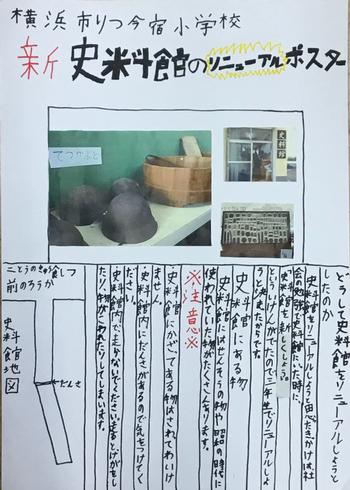 横浜市りつ今宿小学校
新 史料館のリニューアルポスター
てつかぶと
史料館
どうして史料館をリニューアルしようと
したのか
史料館をリニューアルしようと思たきかけは社
会の勉強で史料館にいた時に、
史料館を新しくしよう。
というけんがでたので三年生でリニューアルしよ
うと考えたからです。
史料館にある物
史料館にはせんそうの物や昭和の時代に
使われていた物がたくさんあります。
※注意※
史料館にかざてある物はされてわいけ
ません。
史料館内にだんさがあるので気をつけてく
ださい。
史料館内で走らないでください。走るとけがをし
たり、物がこわれたりしてしまいます。
二とうのきゅう食しつ
前のろうか
だんさ
史料館地図